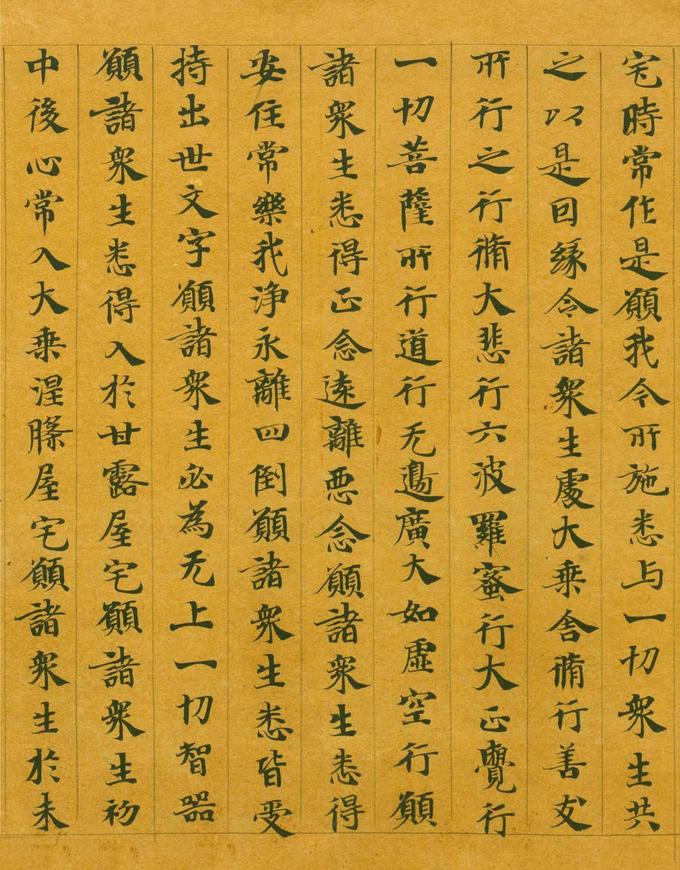 宅時常作是願我今所施悉与一切衆生共
之以是因縁令諸衆生處大乗舍脩行善友
所行之行脩大悲行六波羅蜜行大正覺行
一切菩薩所行道行无邊廣大如虛空行願
諸衆生悉得正念遠離惡念願諸衆生悉得
安住常樂我淨永離四倒願諸衆生悉皆受
持出世文字願諸衆生必為无上一切智器
願諸衆生悉得入於甘露屋宅願諸衆生初
中後心常入大乗涅槃屋宅願諸衆生於未